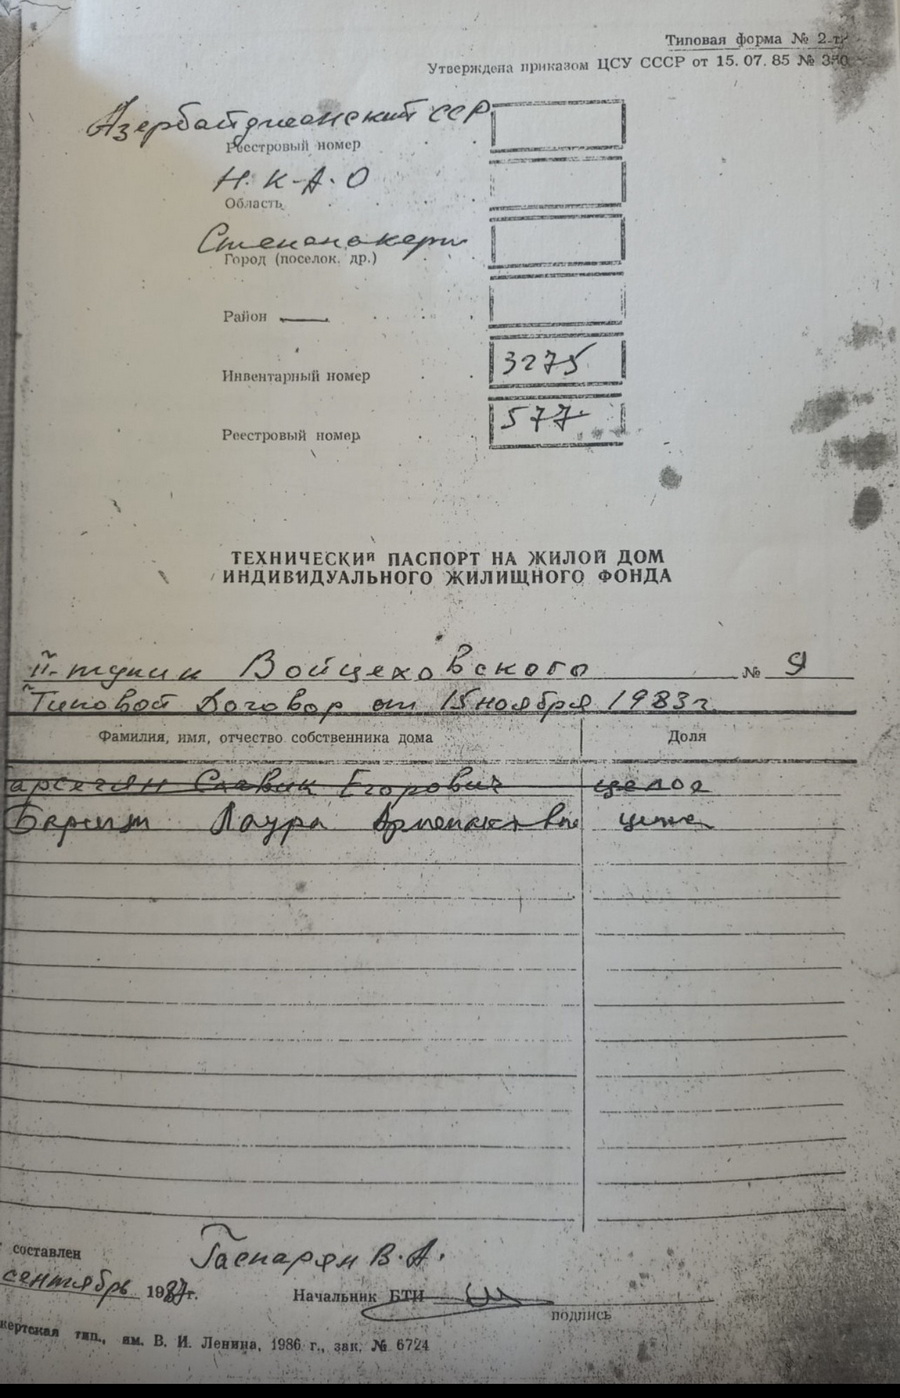 Типовая форма № 2-т
Утверждена приказом ЦСУ СССР от 15. 07. 85 № 380
Азербайджанский ССР
Реестровый номер
Н. К-А. О
Область
Степанакерт
Город (поселок. др.)
Район
Инвентарный номер 3275
Реестровый номер 577
ТЕХНИЧЕСКИЙ ПАСПОРТ НА ЖИЛОЙ ДОМ
ИНДИВИДУАЛЬНОГО ЖИЛИЩНОГО ФОНДА
II-тупик Войцеховского № 9
Типовой Договор от 15 ноября 1983 г.
Фамилия, имя, отчество собственника дома Доля
арсегян Славик Егорович целое
Лаура
составлен
Гаспарян В. А.
сентябрь 1987 г. Начальник БТИ
подпись
кертская тип., им. В. И. Ленина, 1986 г., зак. № 6724